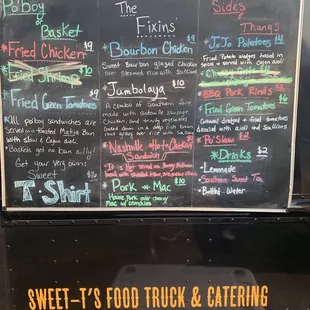 Po'boy
&
Basket
*Fried Chicken $9
*Fried Shrimp $10
*Fried Green Tomatoes $9
*All poboy sandwiches are
Served on toasted Bun
with slaw & Cajun aioli
*Baskets get no bun silly!
Get your very own
Sweet
T Shirt
The
Fixins'
*Bourbon Chicken $9
Sweet Bourbon glazed Chicken
over steamed rice with
*Jumbolaya $10
A combo of Southern fare
made with andouille Sausage,
Chicken, and
over rice with
*Nashville Hot Chicken
Sandwich
*It is Hot
*Pork n Mac $10
over cheesy
Mac w/
Sides
&
Thangs
*JoJo Potatoes $4
Fried Potato wedges tossed in
spices & served with Cajun aioli
*BBQ Pork Rinds
*Fried Green Tomatoes $6
dredged & fried tomatoes
served with aioli and
*Po'Slaw $2
*Drinks $2
-Lemonade
-Southern Sweet Tea
-Bottled Water
SWEET-T'S FOOD TRUCK & CATERING